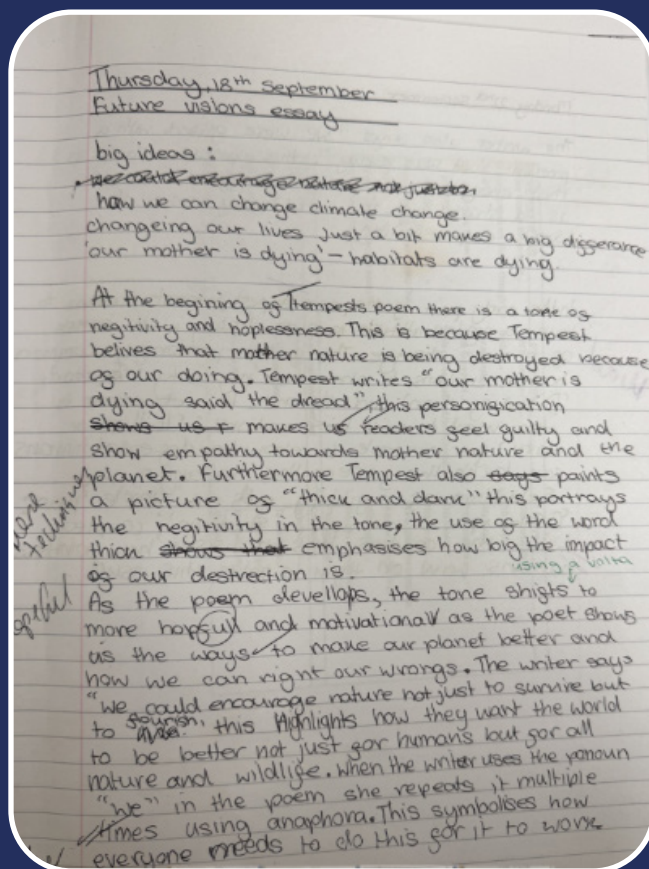 Thursday, 18th September
Future visions essay
big ideas :
how we can change climate change.
changeing our lives just a bit makes a big differance
'our mother is dying' - habitats are dying.
At the begining of Tempests poem there is a tone of
negitivity and hoplessness. This is because Tempest
belives that mother nature is being destroyed because
of our doing. Tempest writes "our mother is
dying said the dread", this personification
shows us makes us readers feel guilty and
show empathy towards mother nature and the
planet. Furthermore Tempest also says paints
a picture of "thick and dark" this portrays
the negitivity in the tone, the use of the word
thick shows that emphasises how big the impact
of our destrection is.
using a volta
As the poem devellops, the tone shifts to
more hopfull and motivational as the poet shows
us the ways to make our planet better and
how we can right our wrongs. The writer says
"we could encourage nature not just to survive but
to flourish, this Highlights how they want the world
to be better not just for humans but for all
nature and wildlife. when the writer uses the pronoun
"we" in the poem she repeats it multible
times using anaphora. This symbolises how
everyone needs to do this for it to work